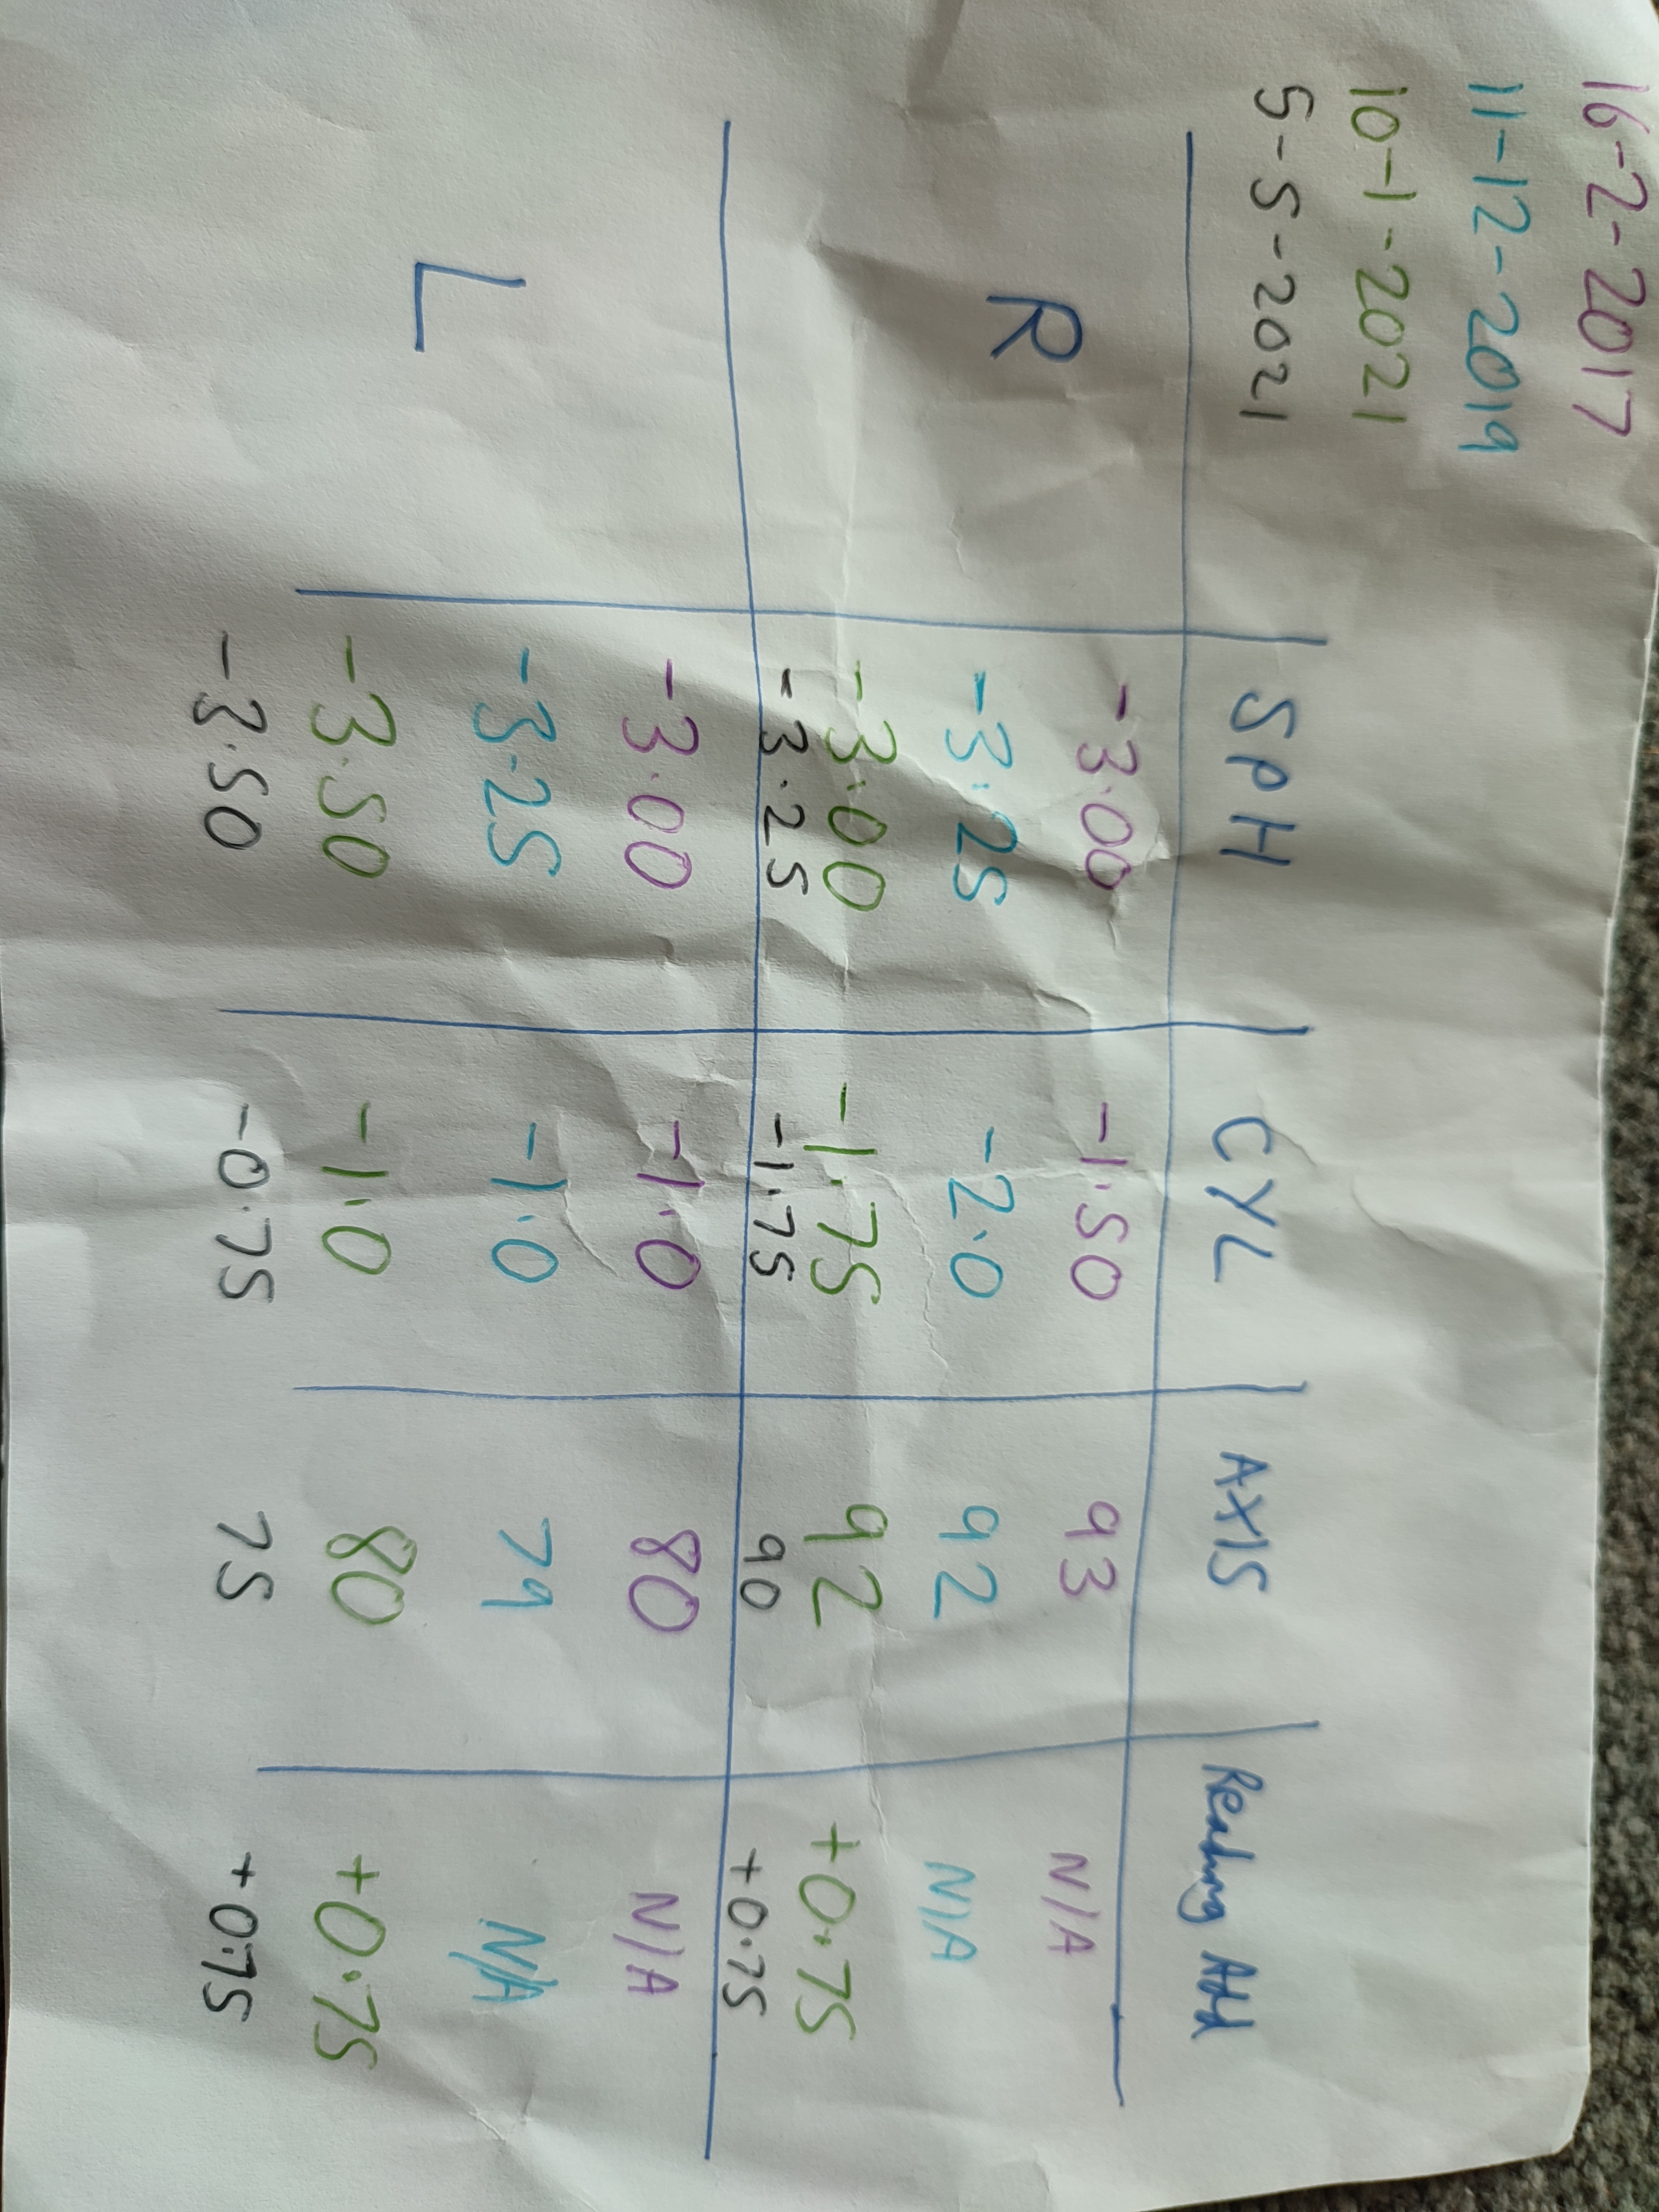 16-2-2017
11-12-2019
10-1-2021
5-5-2021
SPH CYL AXIS Reading Add
R
-3.00 -1.50 93 N/A
-3.25 -2.0 92 N/A
-3.00 -1.75 92 +0.75
-3.25 -1.75 90 +0.75
L
-3.00 -1.0 80 N/A
-3.25 -1.0 79 N/A
-3.50 -1.0 80 +0.75
-3.50 -0.75 75 +0.75